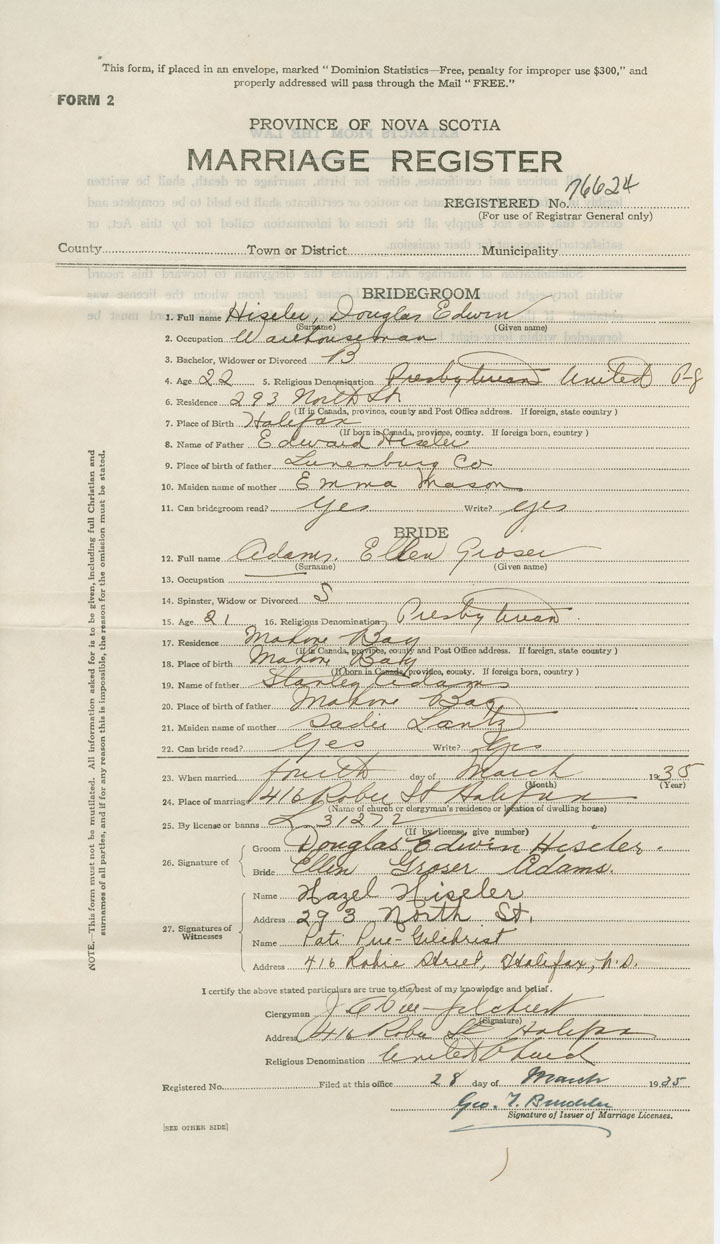 This form, if placed in an envelope, marked "Dominion Statistics—Free, penalty for improper use $300," and
properly addressed will pass through the Mail "FREE."
FORM 2
PROVINCE OF NOVA SCOTIA
MARRIAGE REGISTER
REGISTERED No. 76624
(For use of Registrar General only)
County Town or District Municipality
BRIDEGROOM
1. Full name Hiseler, Douglas Edwin
(Surname) (Given name)
2. Occupation Warehouseman
3. Bachelor, Widower or Divorced B
4. Age 22 5. Religious Denomination Presbyterian United
6. Residence 293 North St
(If in Canada, province, county and Post Office address. If foreign, state country)
7. Place of Birth Halifax
(If born in Canada, province, county. If foreign born, country)
8. Name of Father Edward Hiseler
9. Place of birth of father Lunenburg Co
10. Maiden name of mother Emma Mason
11. Can bridegroom read? Yes Write? Yes
BRIDE
12. Full name Adams. Ellen Groser
(Surname) (Given name)
13. Occupation
14. Spinster, Widow or Divorced S
15. Age 21 16. Religious Denomination Presbyterian
17. Residence Mahone Bay
(If in Canada, province, county and Post Office address. If foreign, state country)
18. Place of birth Mahone Bay
(If born in Canada, province, county. If foreign born, country)
19. Name of father Stanley Adams
20. Place of birth of father Mahone Bay
21. Maiden name of mother Sadie Lantz
22. Can bride read? Yes Write? Yes
23. When married fourth day of March 1935
(Month) (Year)
24. Place of marriage 416 Robie St Halifax
(Name of church or clergyman's residence or location of dwelling house)
25. By license or banns L 31272
(If by license, give number)
26. Signature of
Groom Douglas Edwin Hiseler.
Bride Ellen Groser Adams.
27. Signatures of Witnesses
Name Hazel Hiseler
Address 293 North St.
Name Pati Pue-Gilchrist
Address 416 Robie Street, Halifax, N.S.
I certify the above stated particulars are true to the best of my knowledge and belief.
Clergyman Pue-Gilchrist
(Signature)
Address 416 Robie St Halifax
Religious Denomination United Church
Registered No. Filed at this office 28 day of March 1935
Geo. T.
Signature of Issuer of Marriage Licenses.
[SEE OTHER SIDE]
NOTE.—This form must not be mutilated. All information asked for is to be given, including full Christian and
surnames of all parties, and if for any reason this is impossible, the reason for the omission must be stated.